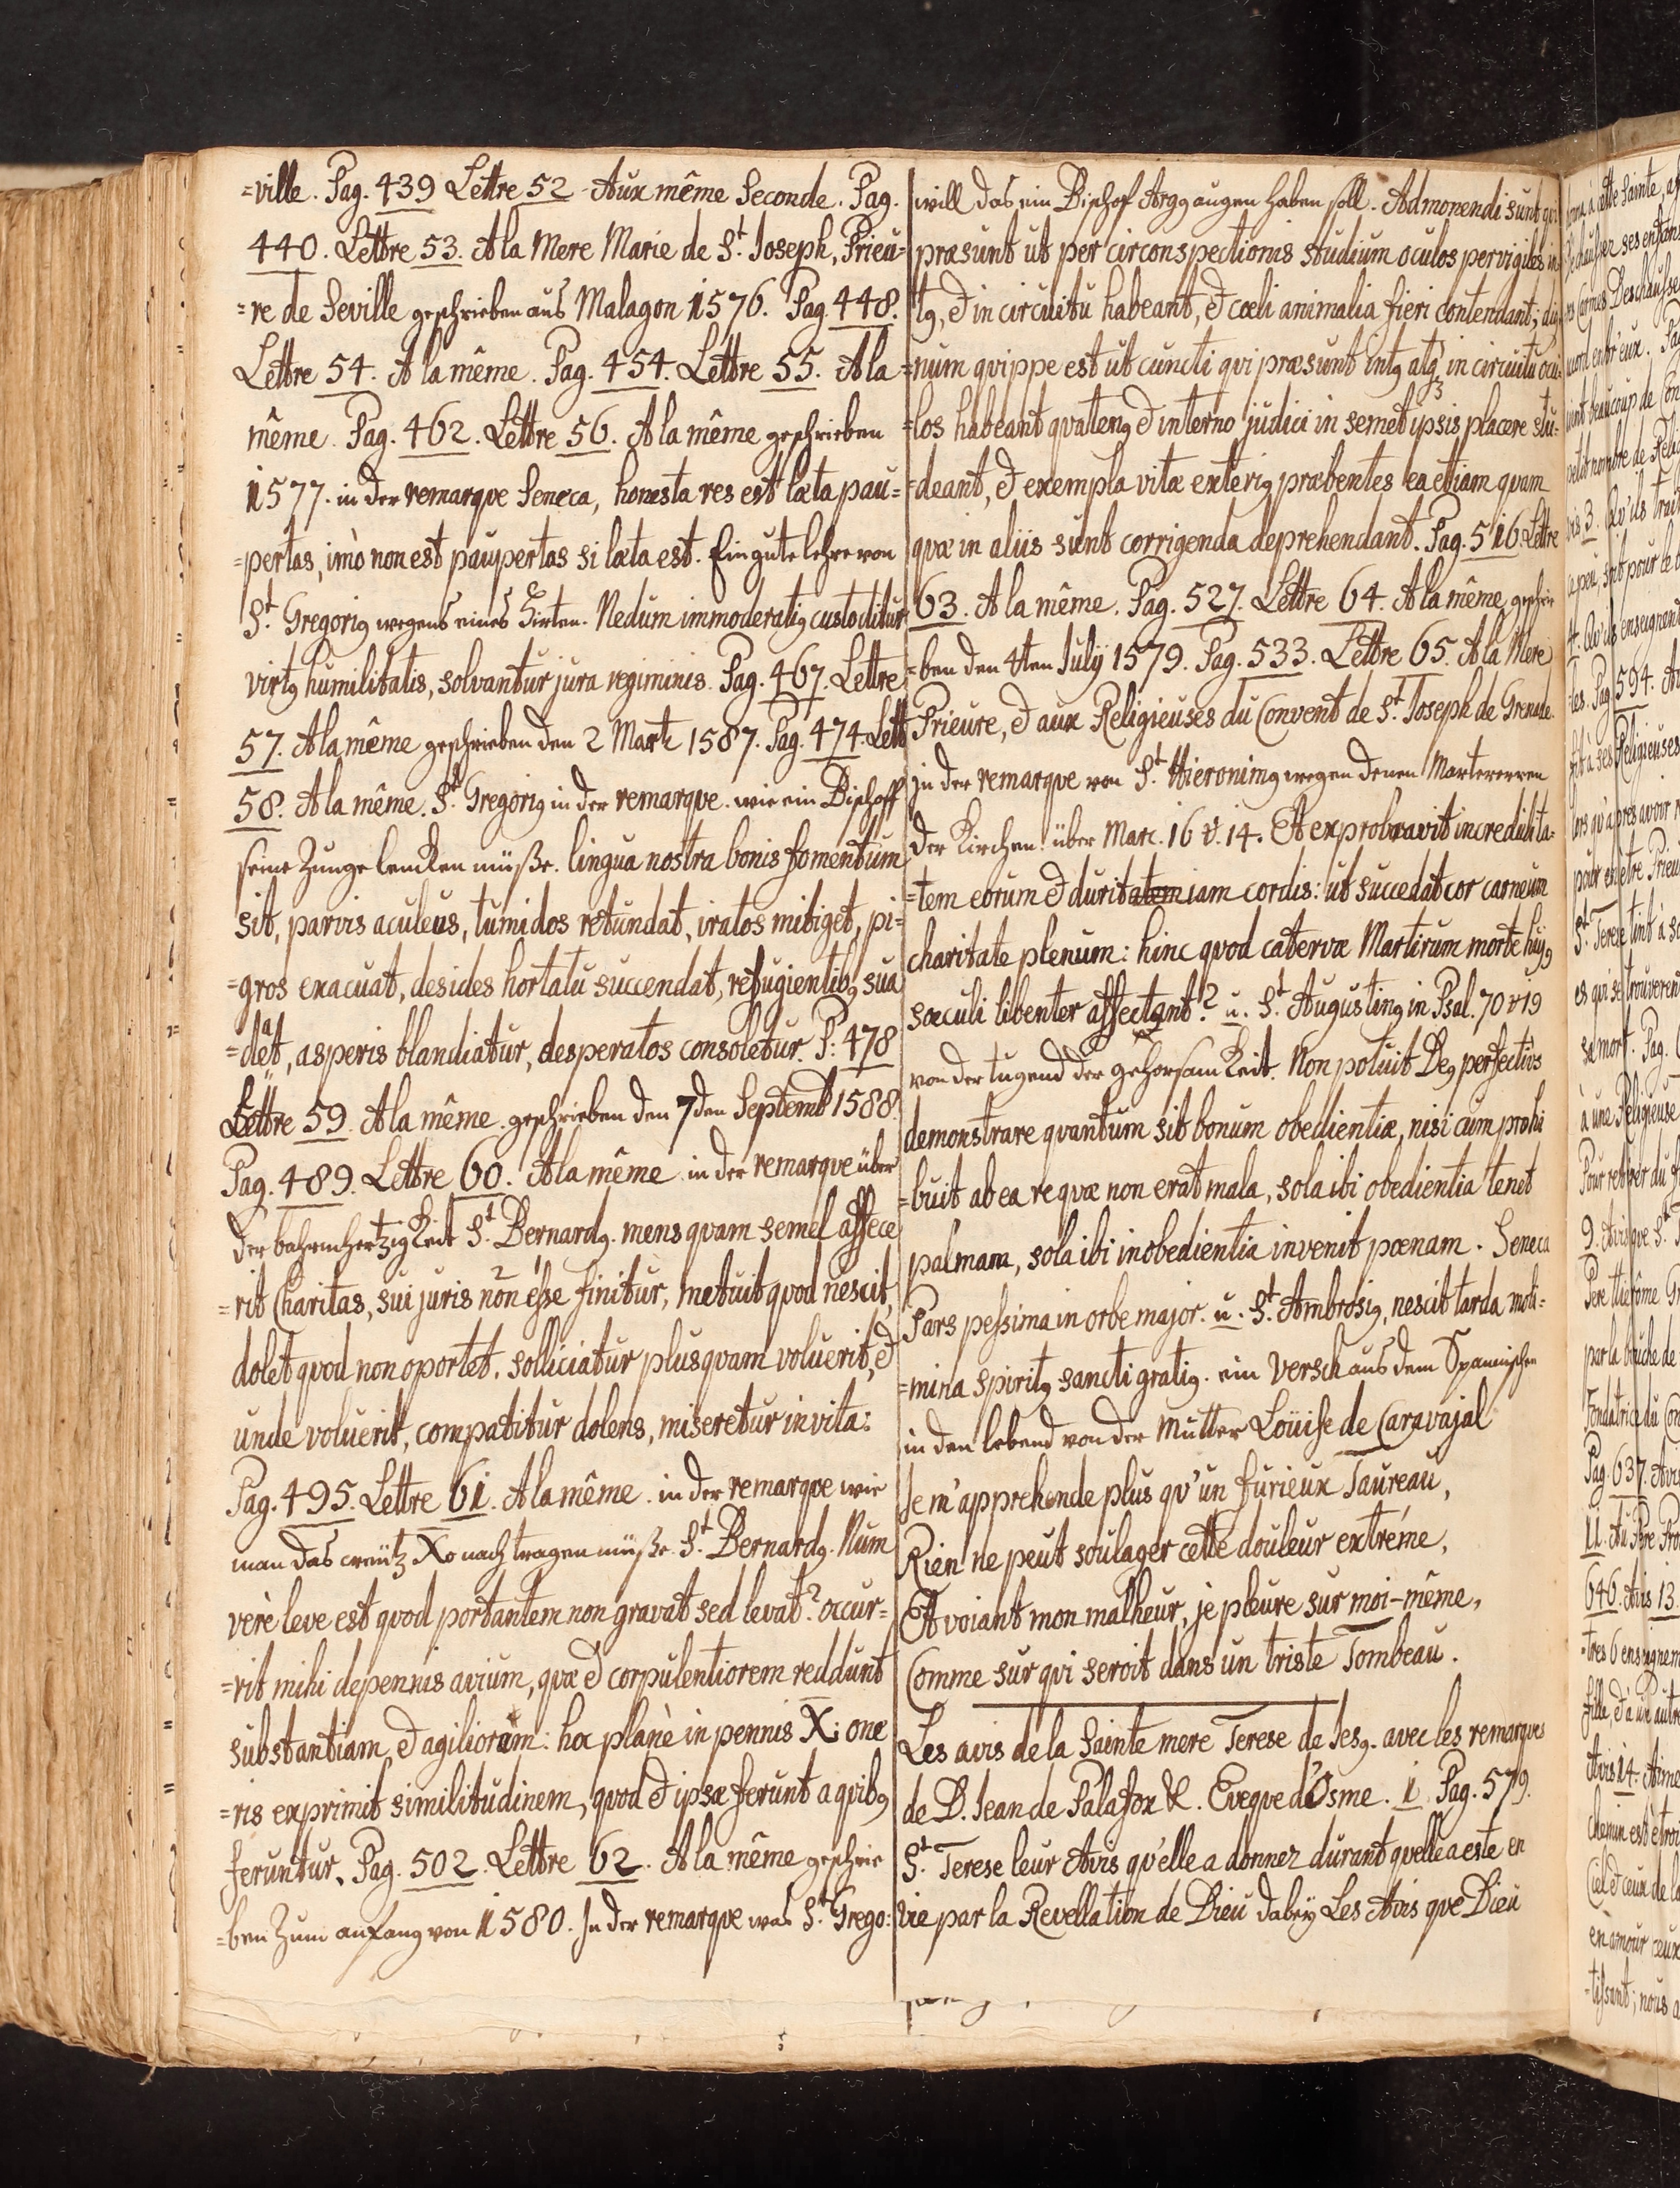 =ville. Pag. 439 Lettre 52 Aux même Seconde. Pag.
440. Lettre 53. A la Mere Marie de St. Joseph, Prieu-
=re de Seville geschrieben aus Malagon 1576. Pag. 448.
Lettre 54. A la même. Pag. 454. Lettre 55. A la
même. Pag. 462. Lettre 56. A la même geschrieben
1577. in der remarqve Seneca, honesta res est læta pau=
=pertas, imò non est paupertas si læta est. Ein gute lehre von
St. Gregorig wegens eines Hirten. Nedum immoderatig custoditur
virtg humilitatis, solvantur jura regiminis. Pag. 467. Lettre
57. A la même geschrieben den 2 Marti 1587. Pag. 474. Lett
58. A la même. St. Gregorig in der remarqve. wie ein Bischoff
seine Zunge lencken müße. lingua nostra bonis fomentum
sit, parvis aculeus, tumidos retundat, iratos mitiget, pi=
=gros exacuat, desides hortatu succendat, refugientibg sua
=deat, asperis blandiatur, desperatos consoletur. P: 478
Lettre 59. A la même. geschrieben den 7den Septemb 1588.
Pag. 489. Lettre 60. A la même in der remarqve über
der bahrmhertzigkeit St. Bernardg. mens qvam semel affece
=rit Charitas, sui juris non esse sinitur, metuit qvod nescit,
dolet qvod non oportet. solliciatur plusqvam voluerit, &
unde voluerit, compatitur dolens, miseretur invita:
Pag. 495. Lettre 61. A la même. in der remarqve wie
man das creütz Xo nach tragen müße. St. Bernardg. Num
verè leve est qvod portantem non gravat sed levat? occur=
=rit mihi de pennis avium, qvæ & corpulentiorem reddunt
substantiam, & agiliorem: hoc planè in pennis Xi one
=ris exprimit similitudinem, qvod & ipsæ ferunt a qvibg
feruntur. Pag. 502. Lettre 62. A la même geschrie
=ben Zum anfang von 1580. In der remarqve was St. Grego:
will das ein Bischof Argg augen haben soll. Admonendi sunt qvi
præsunt ut per circonspectionis studium oculos pervigiles in=
=tg, & in circuitu habeant, & cœli animalia fieri contendant; dig
=num qvippe est ut cuncti qvi præsunt intg atg in circuitu ocu=
=los habeant qvateng & interno judici in semet ipsis placere stu=
=deant, & exempla vitæ exterig præbentes ea etiam qvam
qvæ in aliis sunt corrigenda deprehendant. Pag. 516. Lettre
63. A la même. Pag. 527. Lettre 64. A la même geschrie
=ben den 4ten Julÿ 1579. Pag. 533. Lettre 65. A la Mere
Prieure, & aux Religieuses du Convent de St. Joseph de Grenade.
in der remarqve von St. Hieronimg wegen denen Martereren
der Kirchen über Marc. 16 v. 14. Et exprobravit incredulita=
=tem eorum & duritatem iam cordis: ut succedat cor carneum
charitate plenum: hinc qvod catervæ Martirum morte hujg
sæculi libenter affectant? u. St. Augusting in Psal. 70 v 19
von der tugend der gehorsamkeit. Non potuit Deg perfectiùs
demonstrare qvantum sit bonum obedientiæ, nisi cum prohi
=buit ab ea re qvæ non erat mala, sola ibi obedientia tenet
palmam, sola ibi inobedientia invenit pœnam. Seneca
Pars pessima in orbe major. u. St. Ambrosig, nescit tarda moli=
=mina spiritg sancti gratig. ein Versch aus dem Spannischen
in den lebend von der Mutter Loüise de Caravajal
Je m'apprehende plus qv'un furieux Taureau,
Rien ne peut soulager cette douleur extréme,
Et voiant mon malheur, je pleure sur moi-même,
Comme sur qvi seroit dans un triste Tombeau.
Les avis de la Sainte mere Terese de Jesg. avec les remarqves
de D. Jean de Palafox &. Eveqve d'Osme. 1 Pag. 579.
St. Terese leur Avis qv'elle a donnez durant qvelle a este en
vie par la Revellation de Dieu dabeÿ Les Avis qve Dieu